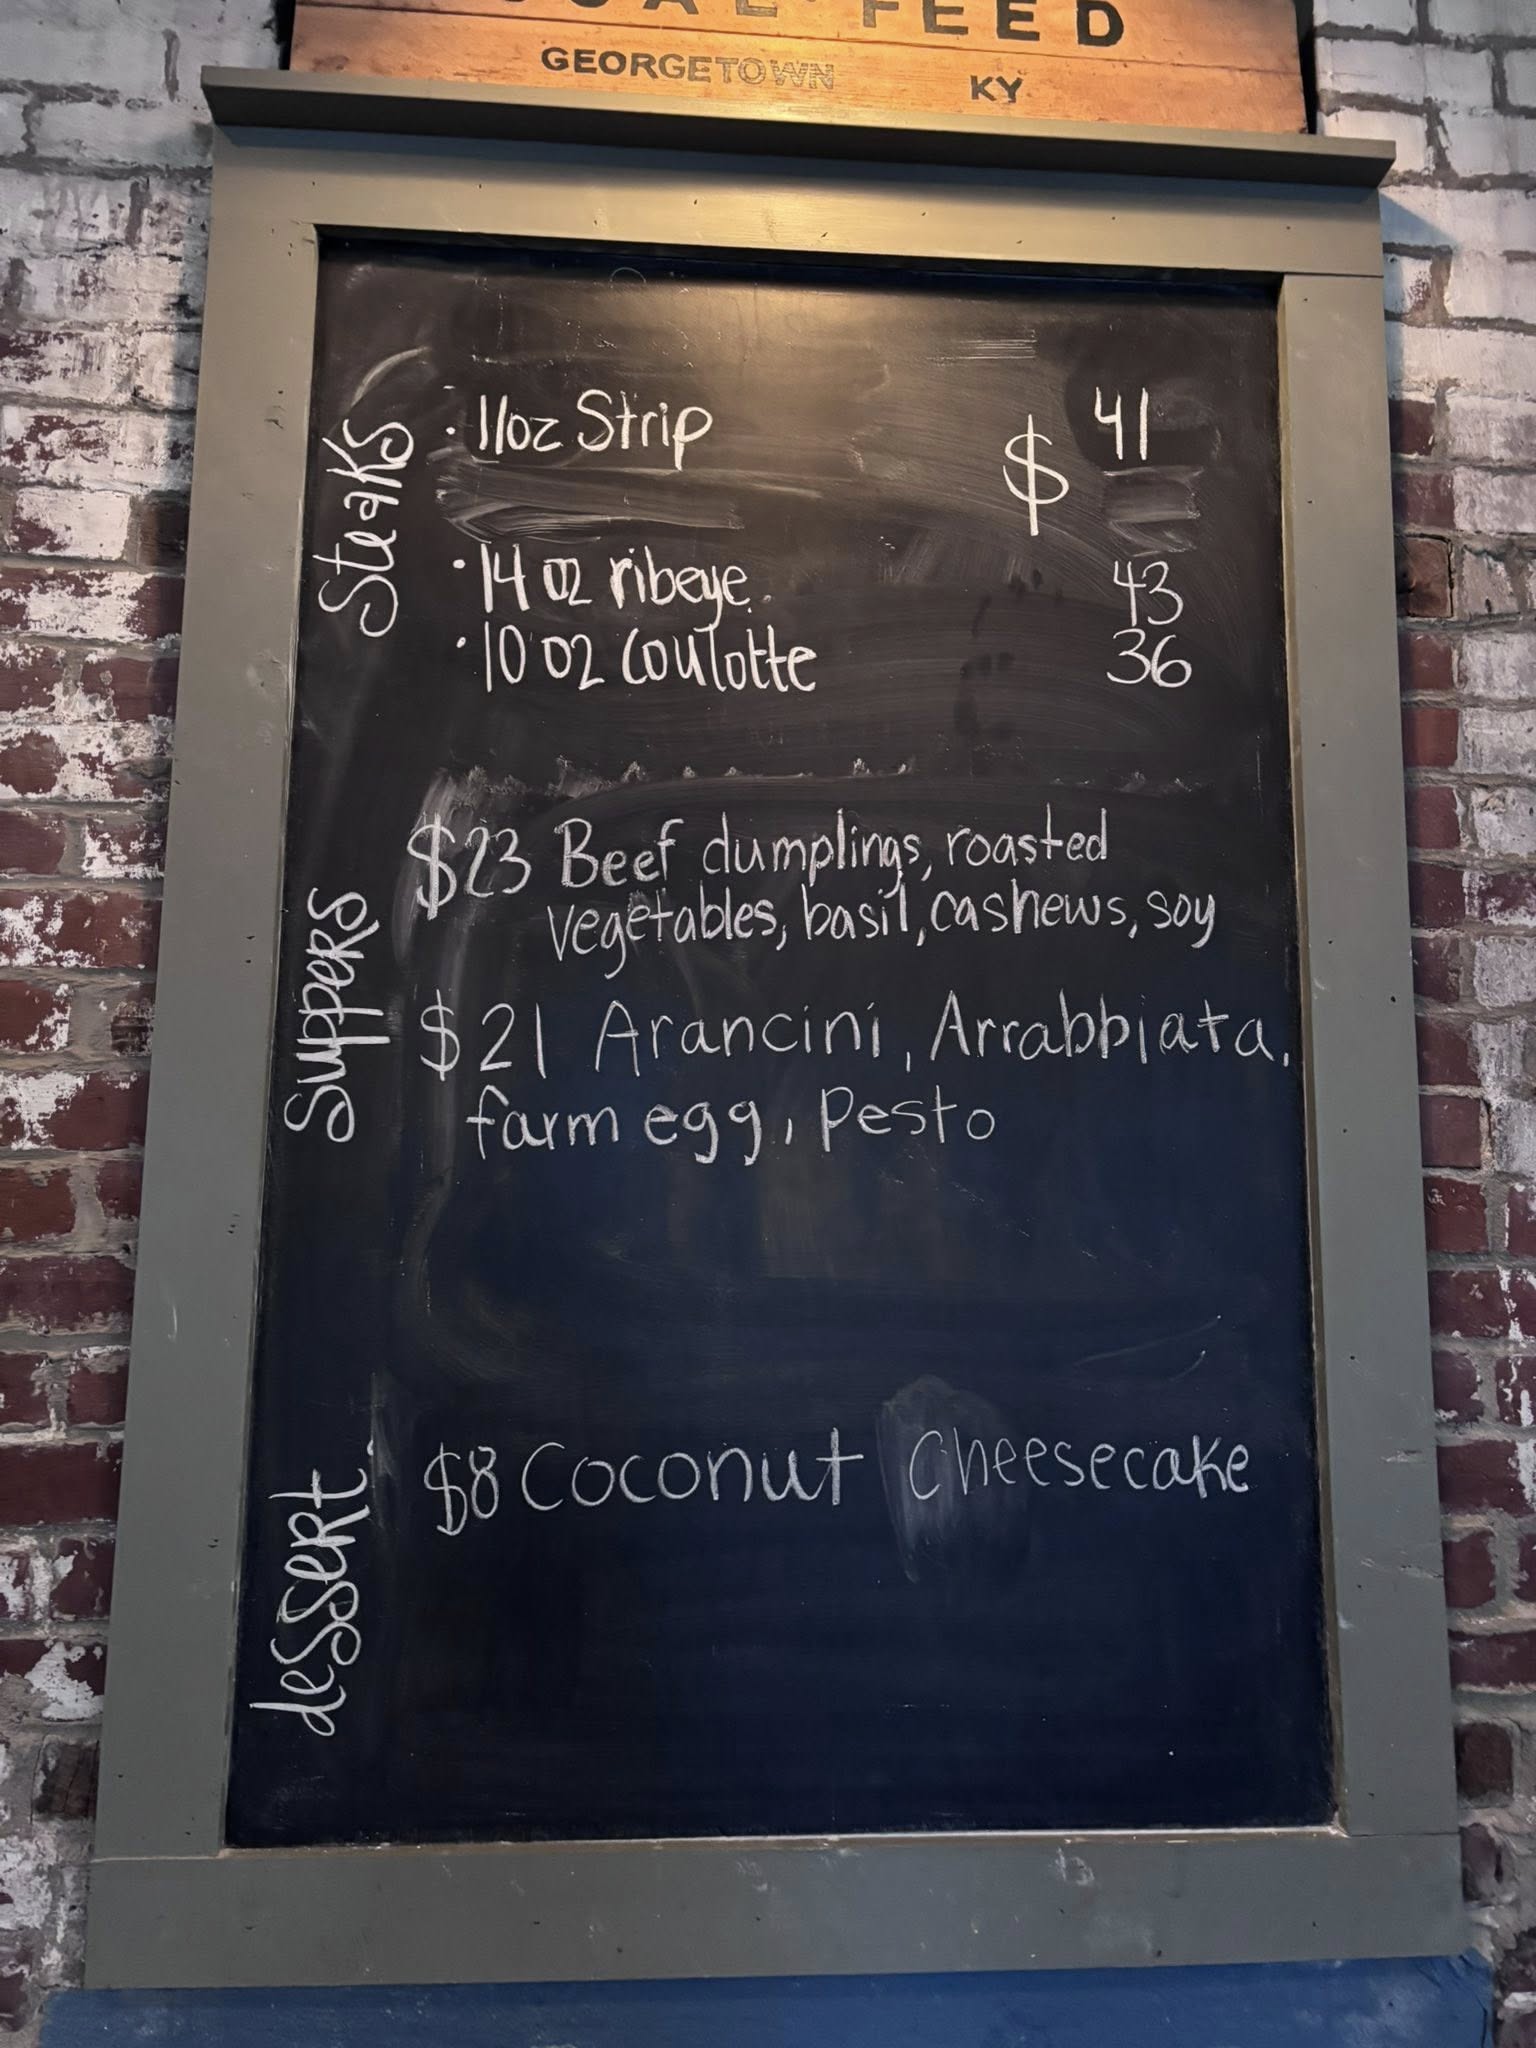 FEED
GEORGETOWN KY
Steaks
· 11oz Strip $ 41
· 14 oz ribeye 43
· 10 oz Coulotte 36
Suppers
$23 Beef dumplings, roasted
vegetables, basil, cashews, soy
$21 Arancini, Arrabbiata,
farm egg, Pesto
dessert
$8 Coconut Cheesecake